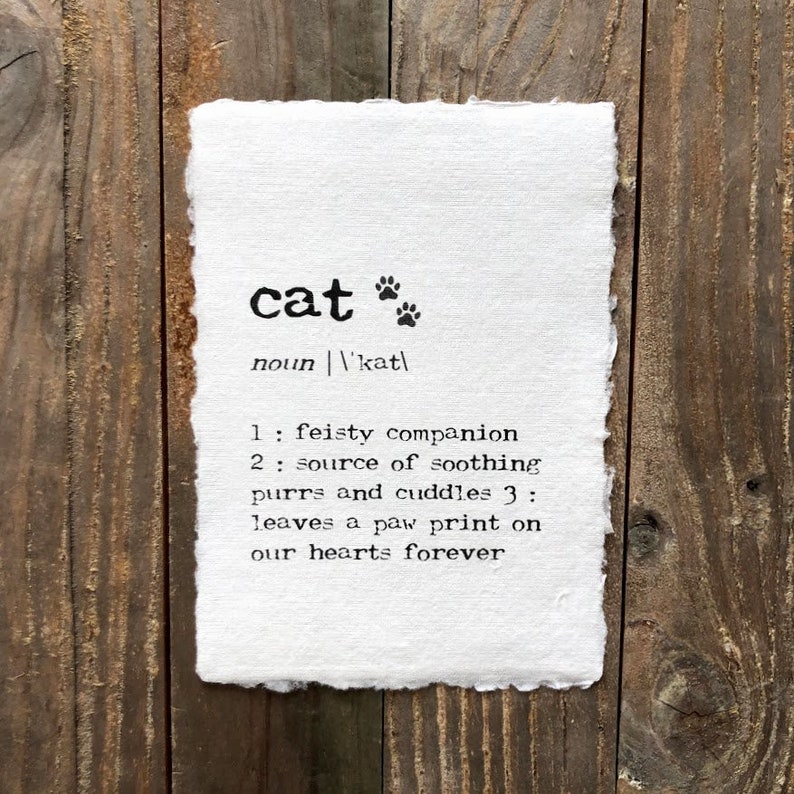 cat
noun | \'kat\
1 : feisty companion
2 : source of soothing
purrs and cuddles 3 :
leaves a paw print on
our hearts forever